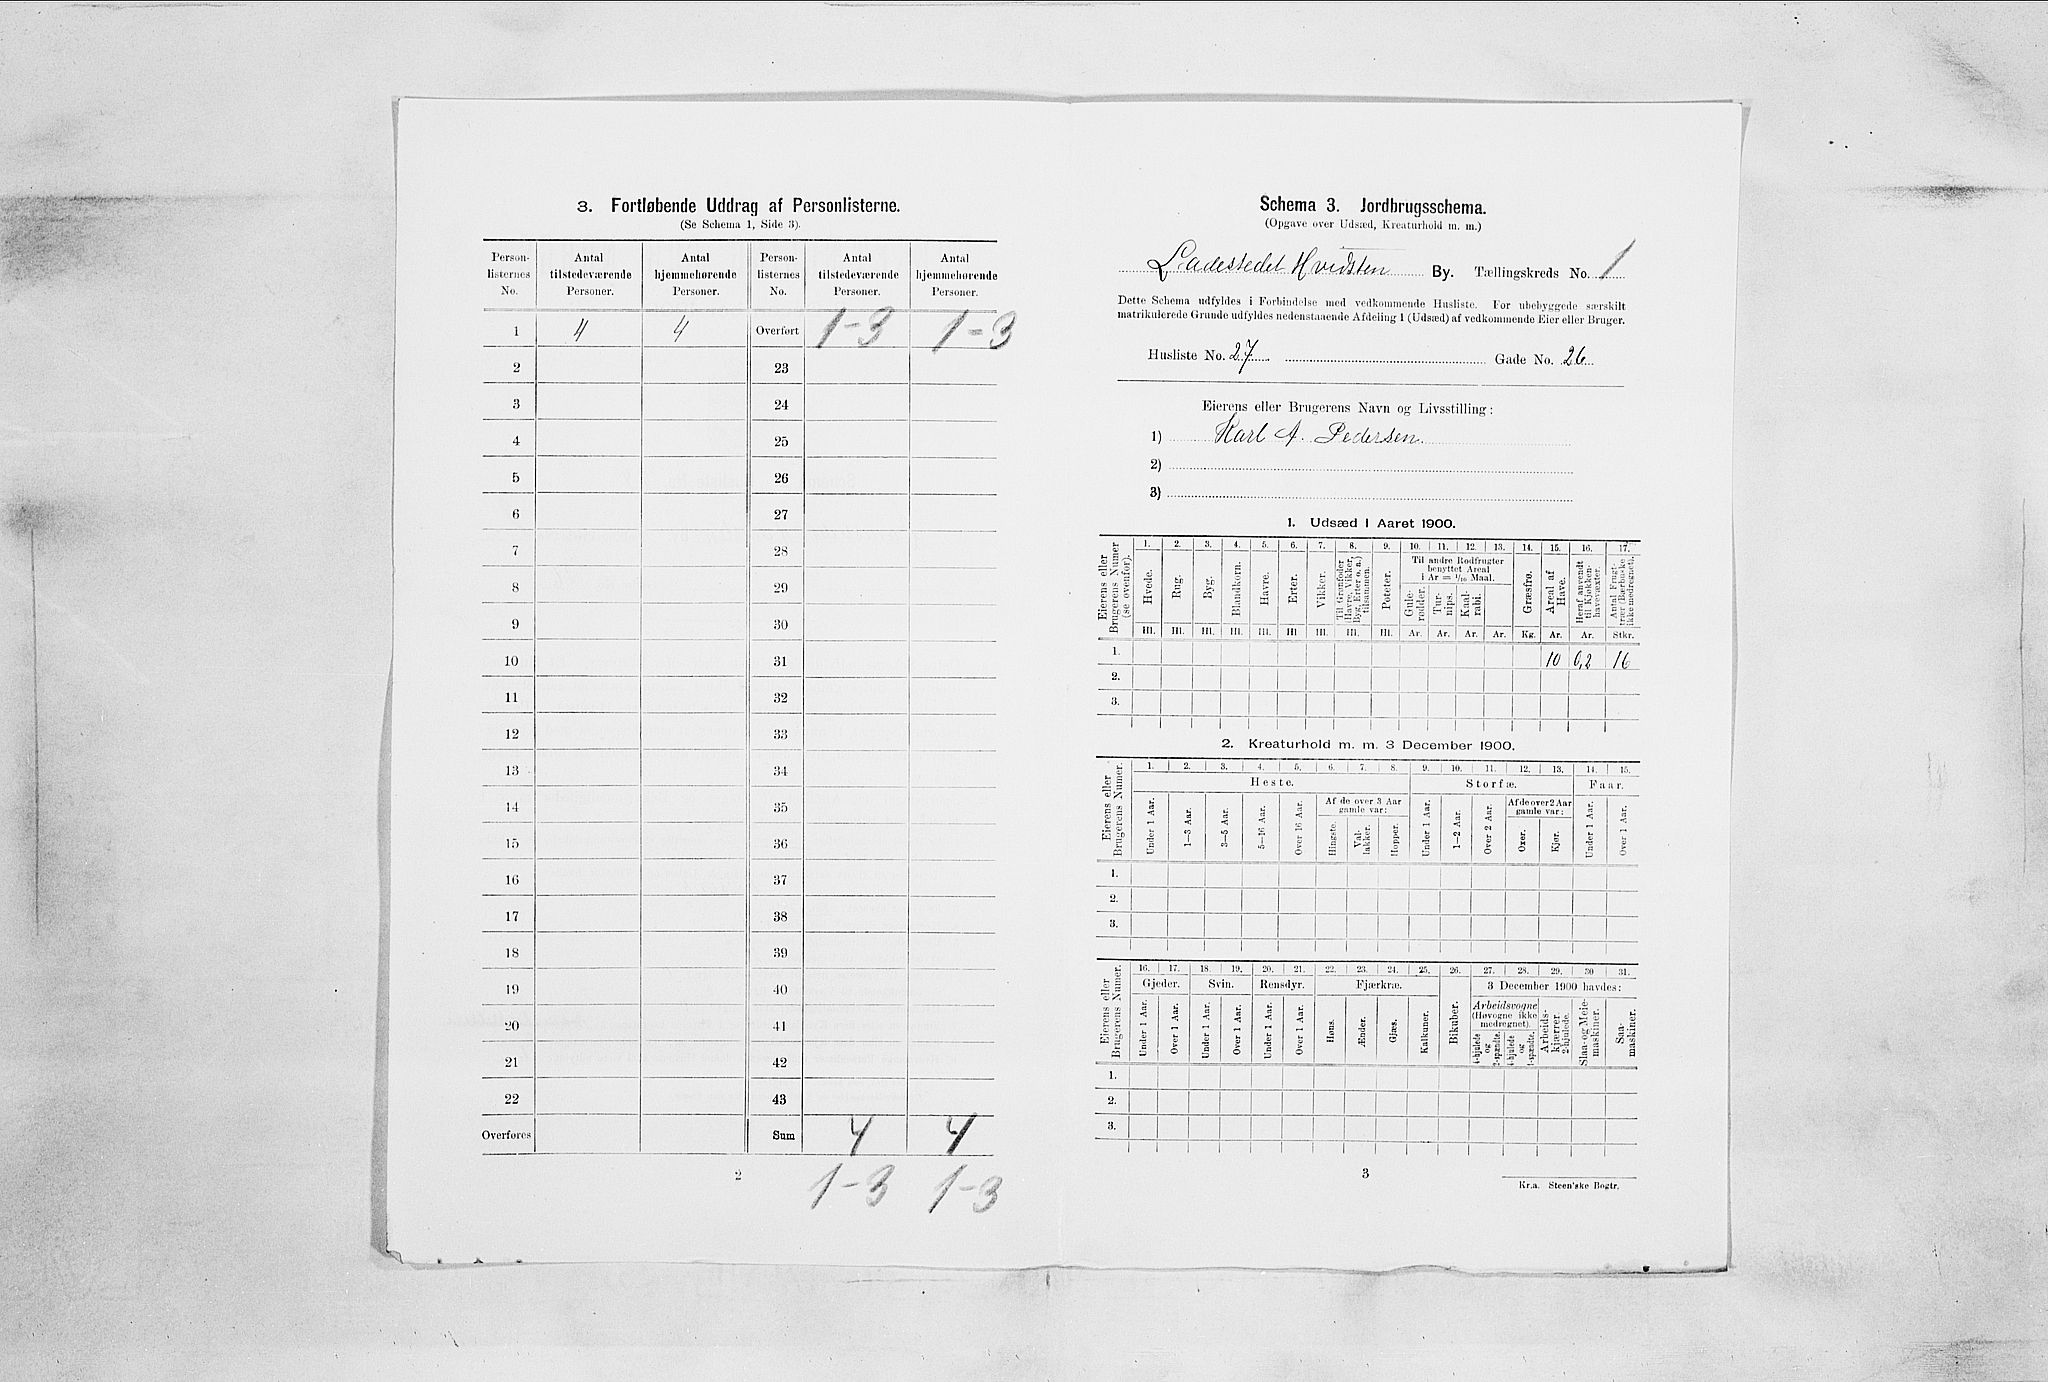 3. Fortløbende Uddrag af Personlisterne.
(Se Schema 1, Side 3).
Person-listernes No. | Antal tilstedeværende Personer. | Antal hjemmehørende Personer. | Person-listernes No. | Antal tilstedeværende Personer. | Antal hjemmehørende Personer.
1 | 4 | 4 | Overført | 1-3 | 1-3
2 | | | 23
3 | | | 24
4 | | | 25
5 | | | 26
6 | | | 27
7 | | | 28
8 | | | 29
9 | | | 30
10 | | | 31
11 | | | 32
12 | | | 33
13 | | | 34
14 | | | 35
15 | | | 36
16 | | | 37
17 | | | 38
18 | | | 39
19 | | | 40
20 | | | 41
21 | | | 42
22 | | | 43
Overføres | | | Sum | 4 | 4
2
1-3 1-3
Schema 3. Jordbrugsschema.
(Opgave over Udsæd, Kreaturhold m. m.)
Ladestedet Hvidsten By. Tællingskreds No. 1
Dette Schema udfyldes i Forbindelse med vedkommende Husliste. For ubebyggede særskilt
matrikulerede Grunde udfyldes nedenstaaende Afdeling 1 (Udsæd) af vedkommende Eier eller Bruger.
Husliste No. 27 Gade No. 26
Eierens eller Brugerens Navn og Livsstilling:
1) Karl A. Pedersen.
2)
3)
1. Udsæd i Aaret 1900.
Eierens eller Brugerens Numer (se ovenfor). | 1. | 2. | 3. | 4. | 5. | 6. | 7. | 8. | 9. | 10. | 11. | 12. | 13. | 14. | 15. | 16. | 17.
Til andre Rodfrugter benyttet Areal i Ar = 1/10 Maal.
Hvede. | Rug. | Byg. | Blandkorn. | Havre. | Erter. | Vikker. | Til Grønfoder (Havre, Vikker, Byg, Erter o. a.) tilsammen. | Poteter. | Gule-rødder. | Tur-nips. | Kaal-rabi. | | Græsfrø. | Areal af Have. | Heraf anvendt til Kjøkken-havevæxter. | Antal Frugt-trær (Bærbuske ikke medregnet).
Hl. | Hl. | Hl. | Hl. | Hl. | Hl | Hl. | Hl. | Hl. | Ar. | Ar. | Ar. | Ar. | Kg. | Ar. | Ar. | Stkr.
1. | 10 | 0,2 | 16
2.
3.
2. Kreaturhold m. m. 3 December 1900.
Eierens eller Brugerens Numer. | 1. | 2. | 3. | 4. | 5. | 6. | 7. | 8. | 9. | 10. | 11. | 12. | 13. | 14. | 15.
Heste. | Storfæ. | Faar.
Af de over 3 Aar gamle var: | Af de over 2 Aar gamle var:
Under 1 Aar. | 1—3 Aar. | 3—5 Aar. | 5—16 Aar. | Over 16 Aar. | Hingste. | Val-lakker. | Hopper. | Under 1 Aar. | 1—2 Aar. | Over 2 Aar. | Oxer. | Kjør. | Under 1 Aar. | Over 1 Aar.
1.
2.
3.
Eierens eller Brugerens Numer. | 16. | 17. | 18. | 19. | 20. | 21. | 22. | 23. | 24. | 25. | 26. | 27. | 28. | 29. | 30 | 31.
Gjeder. | Svin. | Rensdyr. | Fjærkræ. | 3 December 1900 havdes:
Arbeidsvogne (Høvogne ikke medregnet).
Under 1 Aar. | Over 1 Aar. | Under 1 Aar. | Over 1 Aar. | Under 1 Aar. | Over 1 Aar. | Høns. | Ænder. | Gjæs. | Kalkuner. | Bikuber. | 4-hjulede og 2-spændte. | 4-hjulede og 1-spændte. | Arbeids-kjærrer 2-hjulede. | Slaa- og Meie-maskiner. | Saa-maskiner.
1.
2.
3.
3
Kr.a. Steen'ske Bogtr.